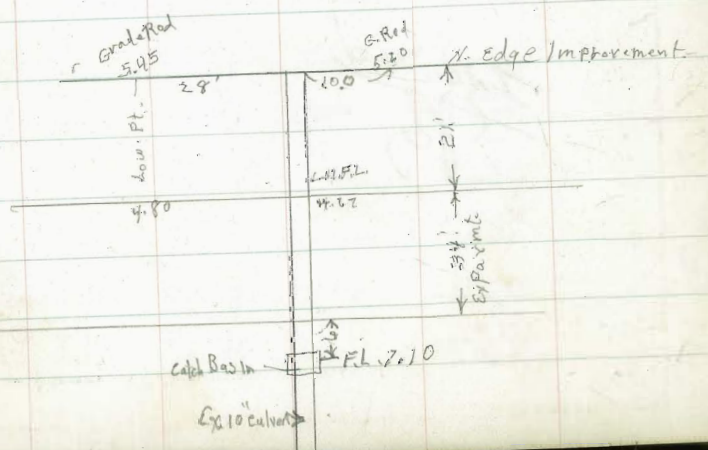 Grade Rod
5.45
G. Rod
5.20
N. Edge Improvement
28'
20.0
Low. Pt.
21'
4.80
Ex Pavmt.
Catch Basin
F.L. 7.10
Ex. 10" Culvert